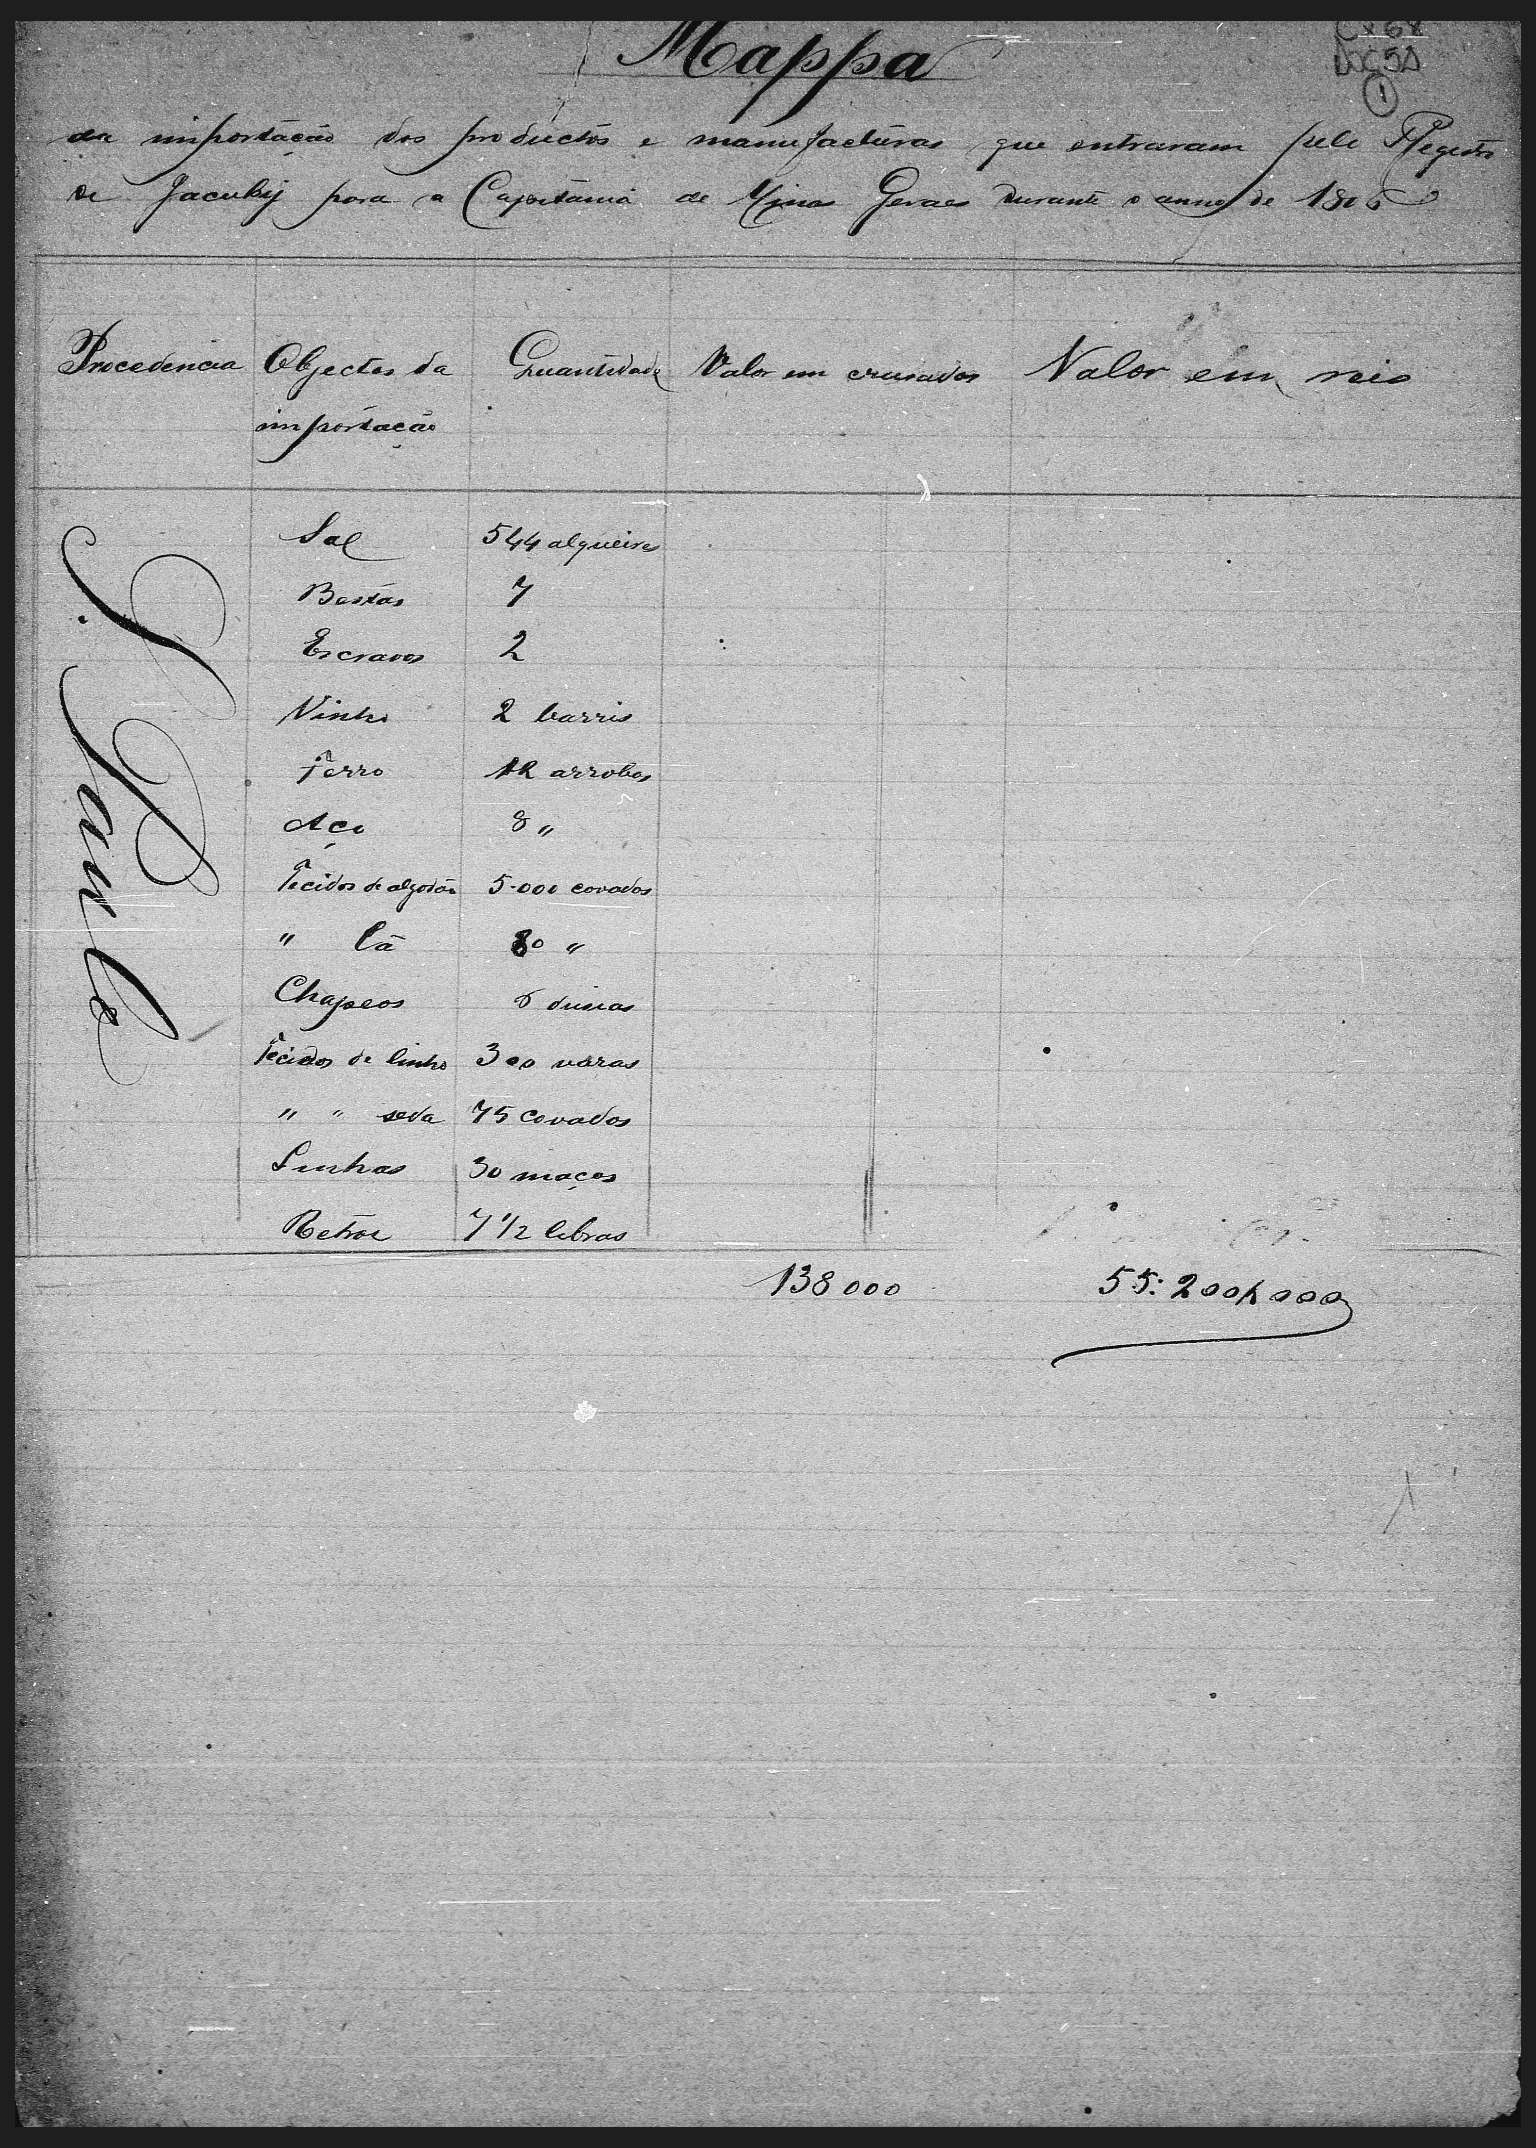 Mappa
Cx 68
Doc 50
1
da importação dos productos e manufacturas que entraram pelo Registro
de Jacuhy para a Capitania de Minas Geraes durante o anno de 1806
Procedencia Objectos da Quantidade Valor em crusados Valor em reis
importação
S. Paulo
Sal 544 alqueires
Bestas 7
Escravos 2
Vinho 2 barris
Ferro 12 arrobas
Aço 8 "
Tecidos de algodão 5.000 covados
" lã 80 "
Chapeos 6 dusias
Tecidos de linho 300 varas
" " seda 75 covados
Linhas 30 maços
Retroz 7 1/2 libras
138000 55:200$000